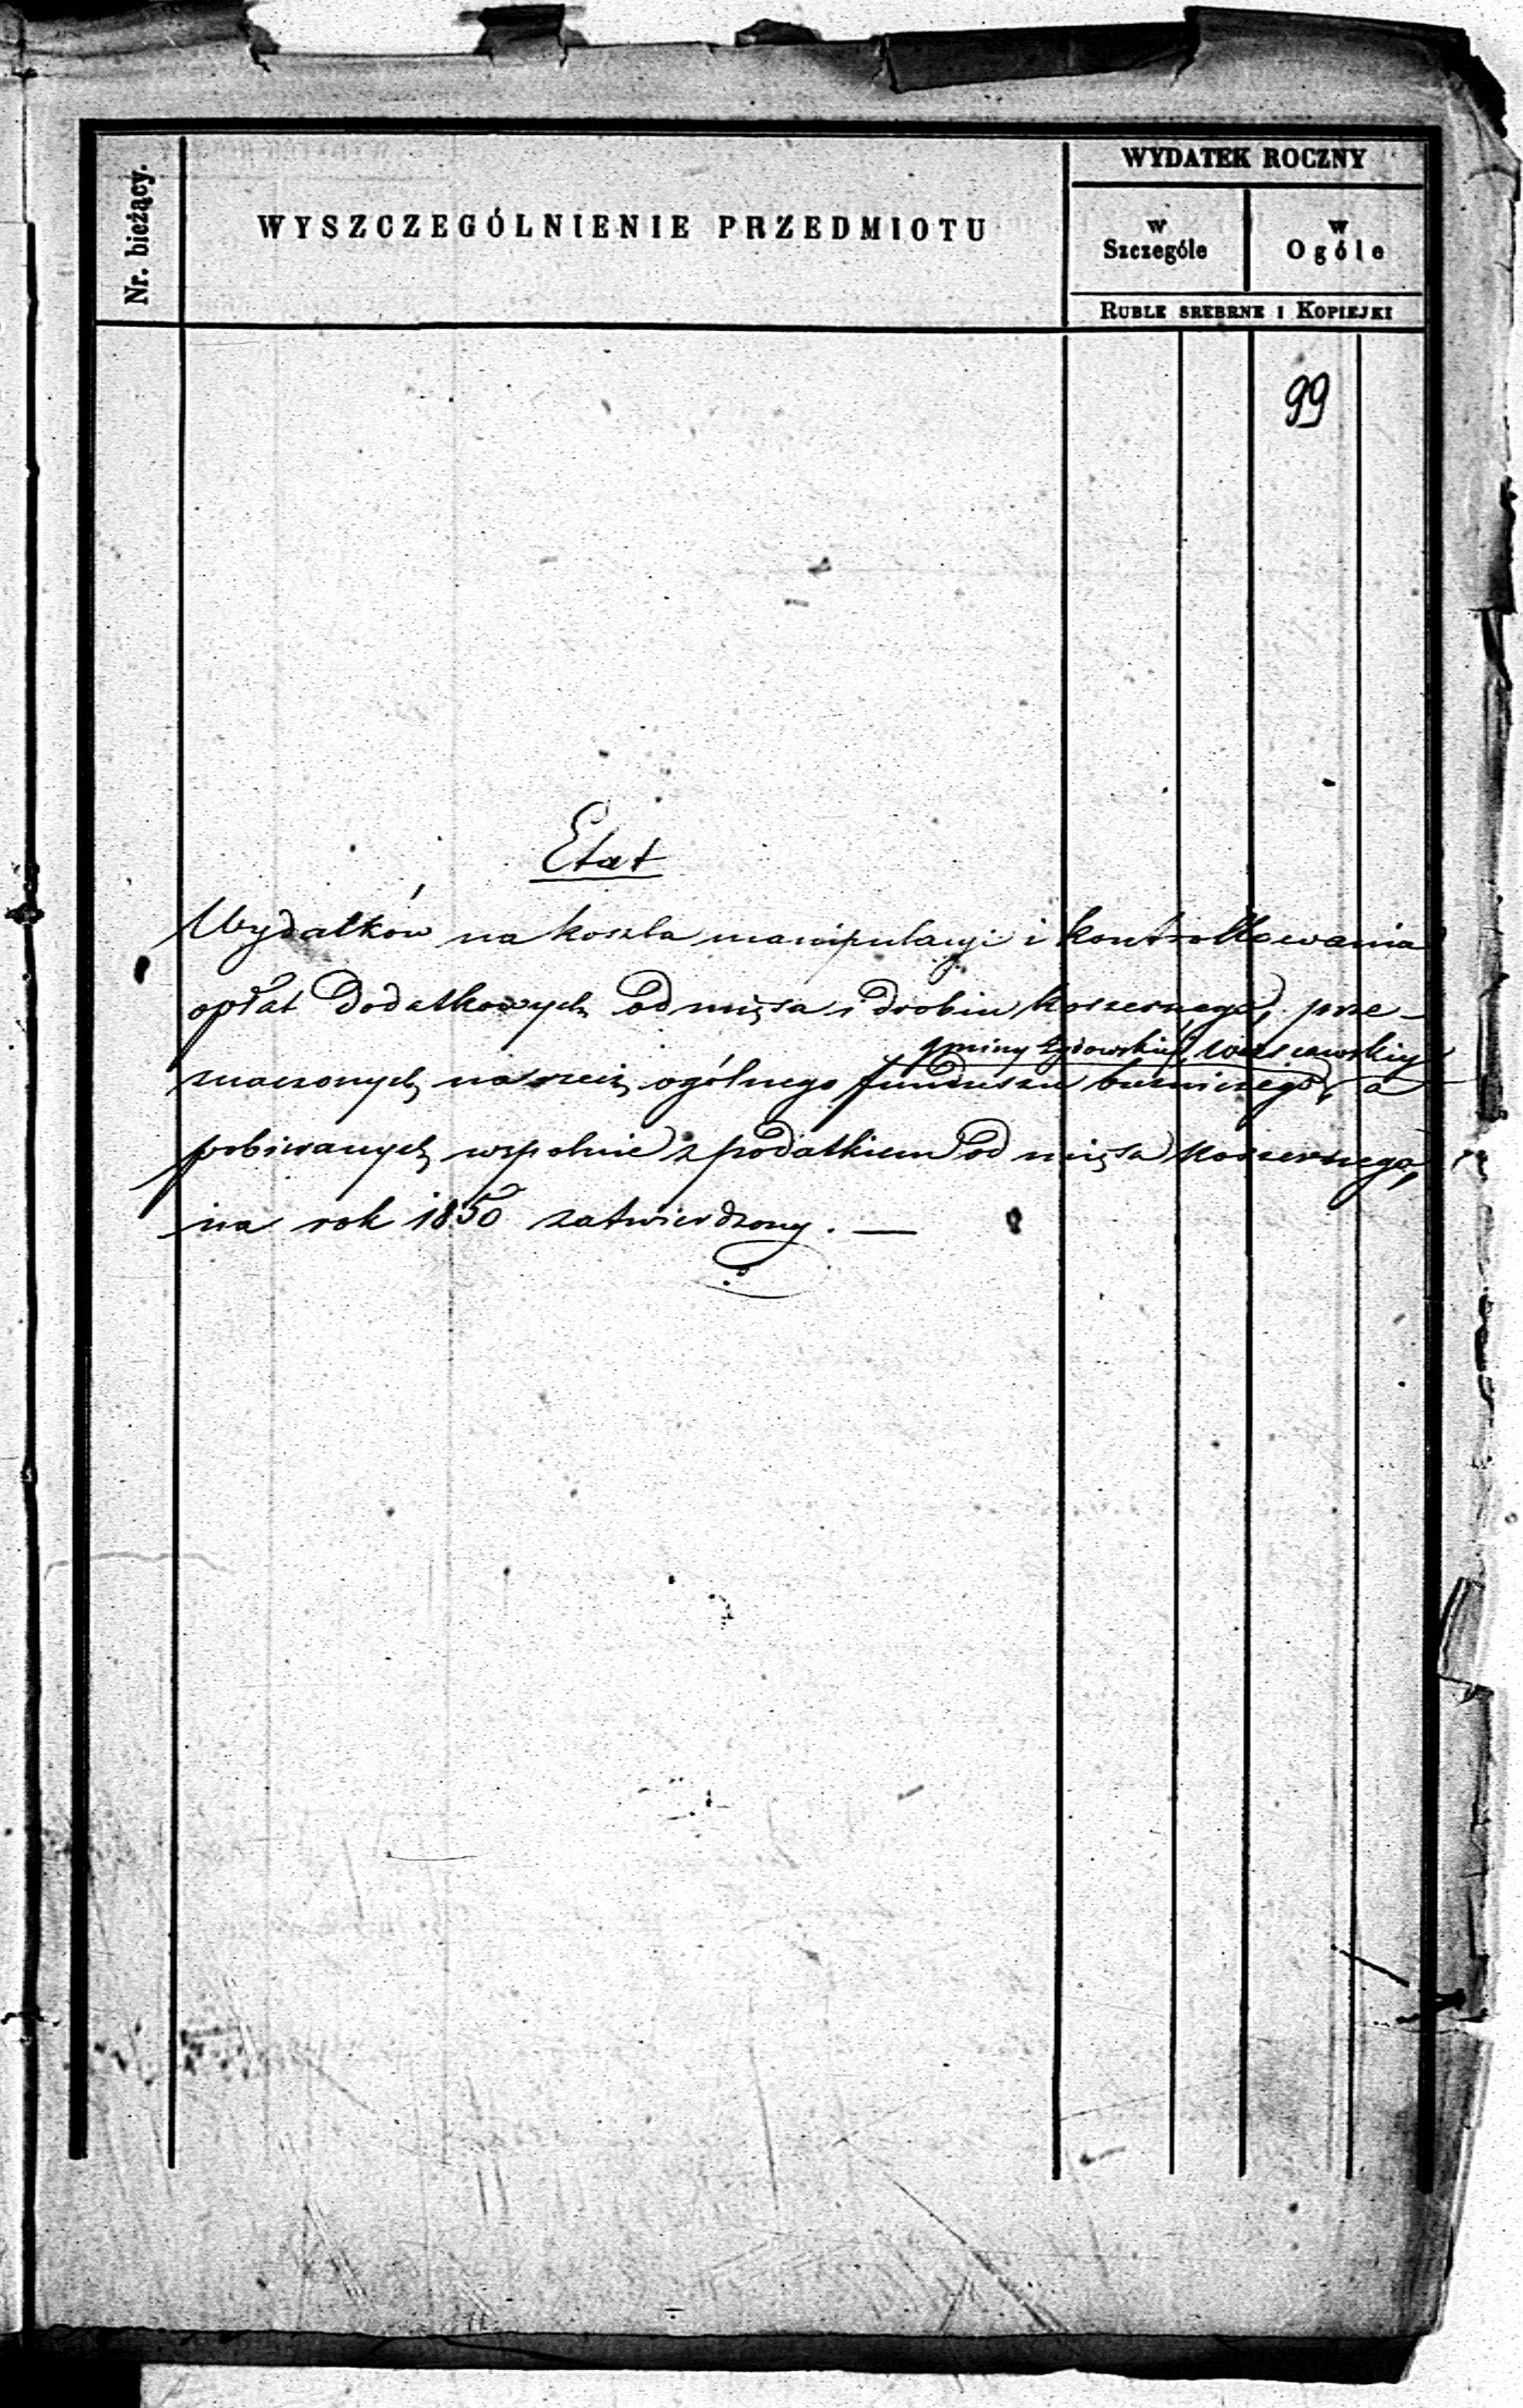 Nr. bieżący.
WYSZCZEGÓLNIENIE PRZEDMIOTU
WYDATEK ROCZNY
w Szczególe
w Ogóle
RUBLE SREBRNE I KOPIEJKI
99
Etat
Wydatków na koszta manipulacyi i kontrollowania
opłat dodatkowych od mięsa i drobiu koszernego, prze-
gminy żydowskiej warszawskiej
znaczonych na rzecz ogólnego funduszu bużniczego, a
pobieranych wspolnie z podatkiem od mięsa koszernego,
na rok 1850 zatwierdzony. —